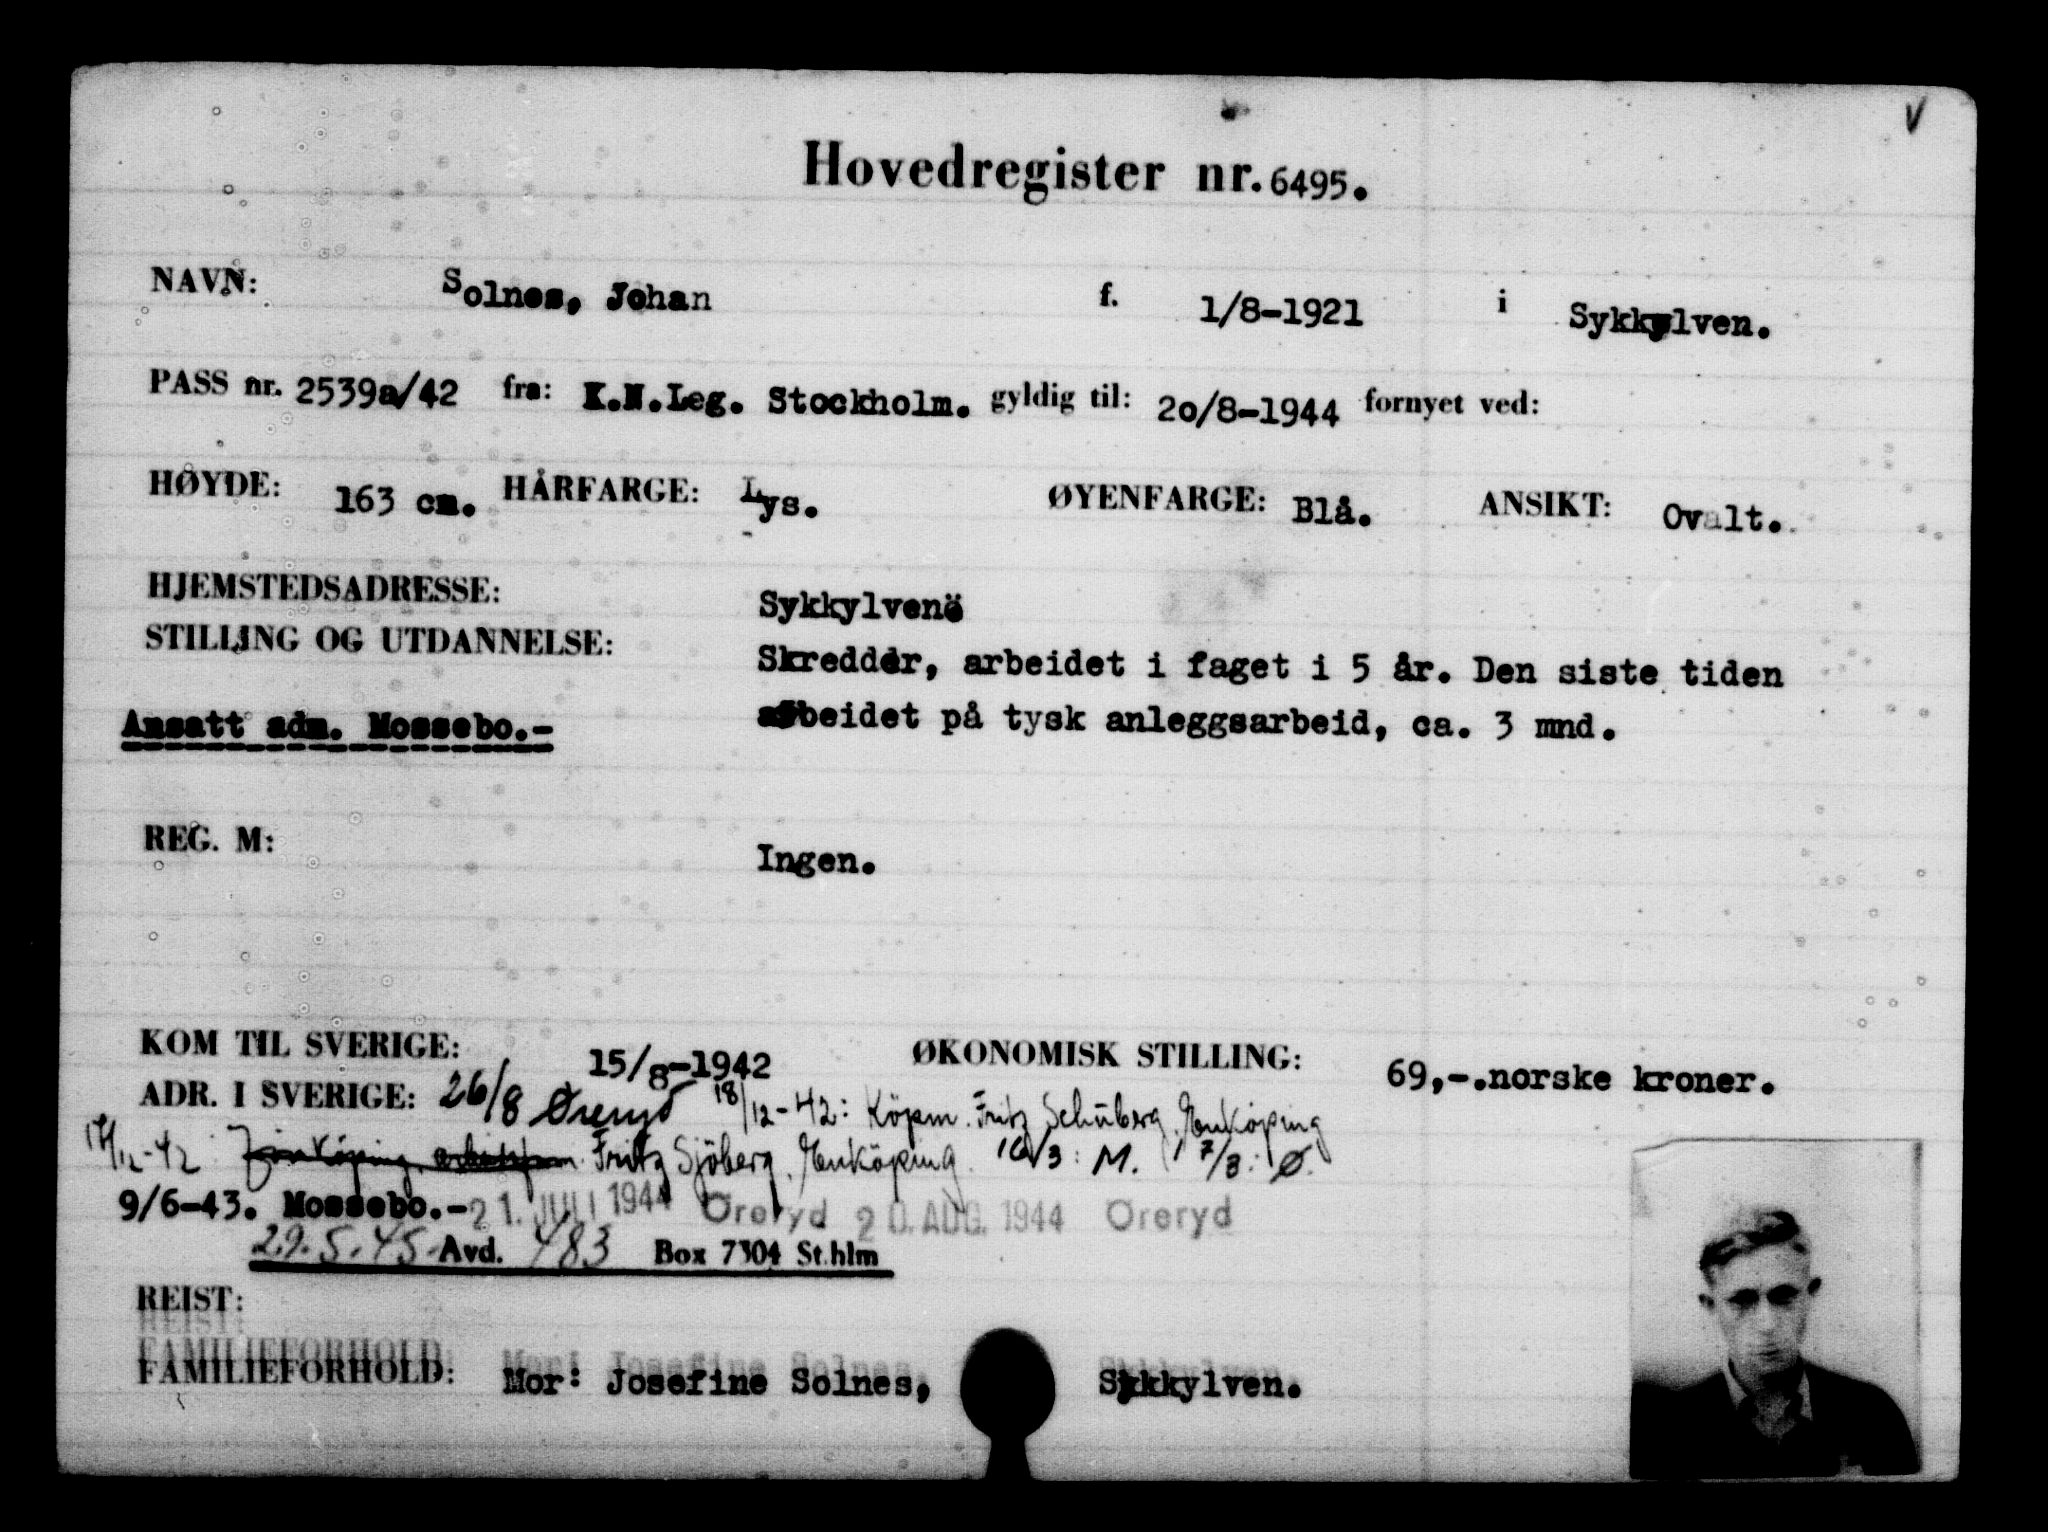 V
Hovedregister nr. 6495.
NAVN: Solnes, Johan f. 1/8-1921 i Sykkylven.
PASS nr. 2539a/42 fra: K.N.Leg. Stockholm. gyldig til: 20/8-1944 fornyet ved:
HØYDE: 163 cm. HÅRFARGE: Lys. ØYENFARGE: Blå. ANSIKT: Ovalt.
HJEMSTEDSADRESSE: Sykkylven
STILLING OG UTDANNELSE: Skredder, arbeidet i faget i 5 år. Den siste tiden
Ansatt adm. Mossebo.- arbeidet på tysk anleggsarbeid, ca. 3 mnd.
REG. M: Ingen.
KOM TIL SVERIGE: 15/8-1942 ØKONOMISK STILLING: 69,-.norske kroner.
ADR. I SVERIGE: 26/8 Øreryd 18/12-42: Köpm. Fritz Schüberg, Enköping
17/12-42: Jönköping, Fritz Sjöberg, Enköping. 16/3: M. 17/3: Ø.
9/6-43. Mossebo.- 21. JULI 1944 Öreryd 20. AUG. 1944 Öreryd
29.5.45. Avd. 483 Box 7304 St.hlm
REIST:
FAMILIEFORHOLD: Mor: Josefine Solnes, Sykkylven.